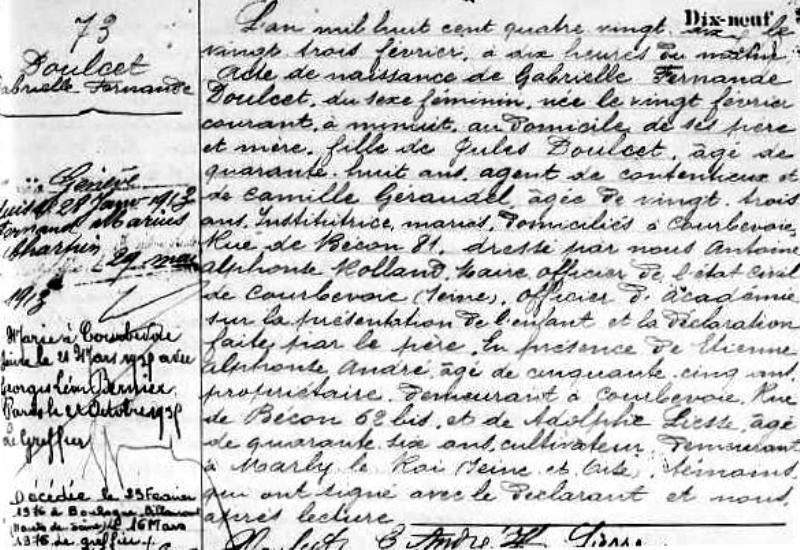 73
Doulcet
Gabrielle Fernande
Genève
28 Janv 1913
Fernand Marius
Charpin
29 mai
1913
Marié à Courbevoie
Seine le 21 Mars 1936 avec
Georges Léon Bernier
Paris le 2 Octobre 1936
Le Greffier
Décédée le 23 Fevrier
1976 à Boulogne Billancourt
(Hauts de Seine) le 16 Mars
1976 Le greffier
Dix-neuf
L'an mil huit cent quatre vingt dix le
vingt trois février, à dix heures du matin
Acte de naissance de Gabrielle Fernande
Doulcet, du sexe féminin, née le vingt février
courant, à minuit, au domicile de ses père
et mère, fille de Jules Doulcet, âgé de
quarante huit ans, agent de contentieux et
de Camille Géraudel, âgée de vingt trois
ans, Institutrice, mariés, domiciliés à Courbevoie,
Rue de Bécon 81, dressé par nous Antoine
Alphonse Holland, Maire, officier de l'état civil
de Courbevoie (Seine), officier d'académie
sur la présentation de l'enfant et la déclaration
faite par le père, En présence de Etienne
Alphonse André, âgé de cinquante cinq ans,
propriétaire demeurant à Courbevoie, Rue
de Bécon 62 bis, et de Adolphe Liesse, âgé
de quarante six ans, cultivateur, demeurant
à Marly le Roi (Seine et Oise), témoins
qui ont signé avec le déclarant et nous,
après lecture
Doulcet André